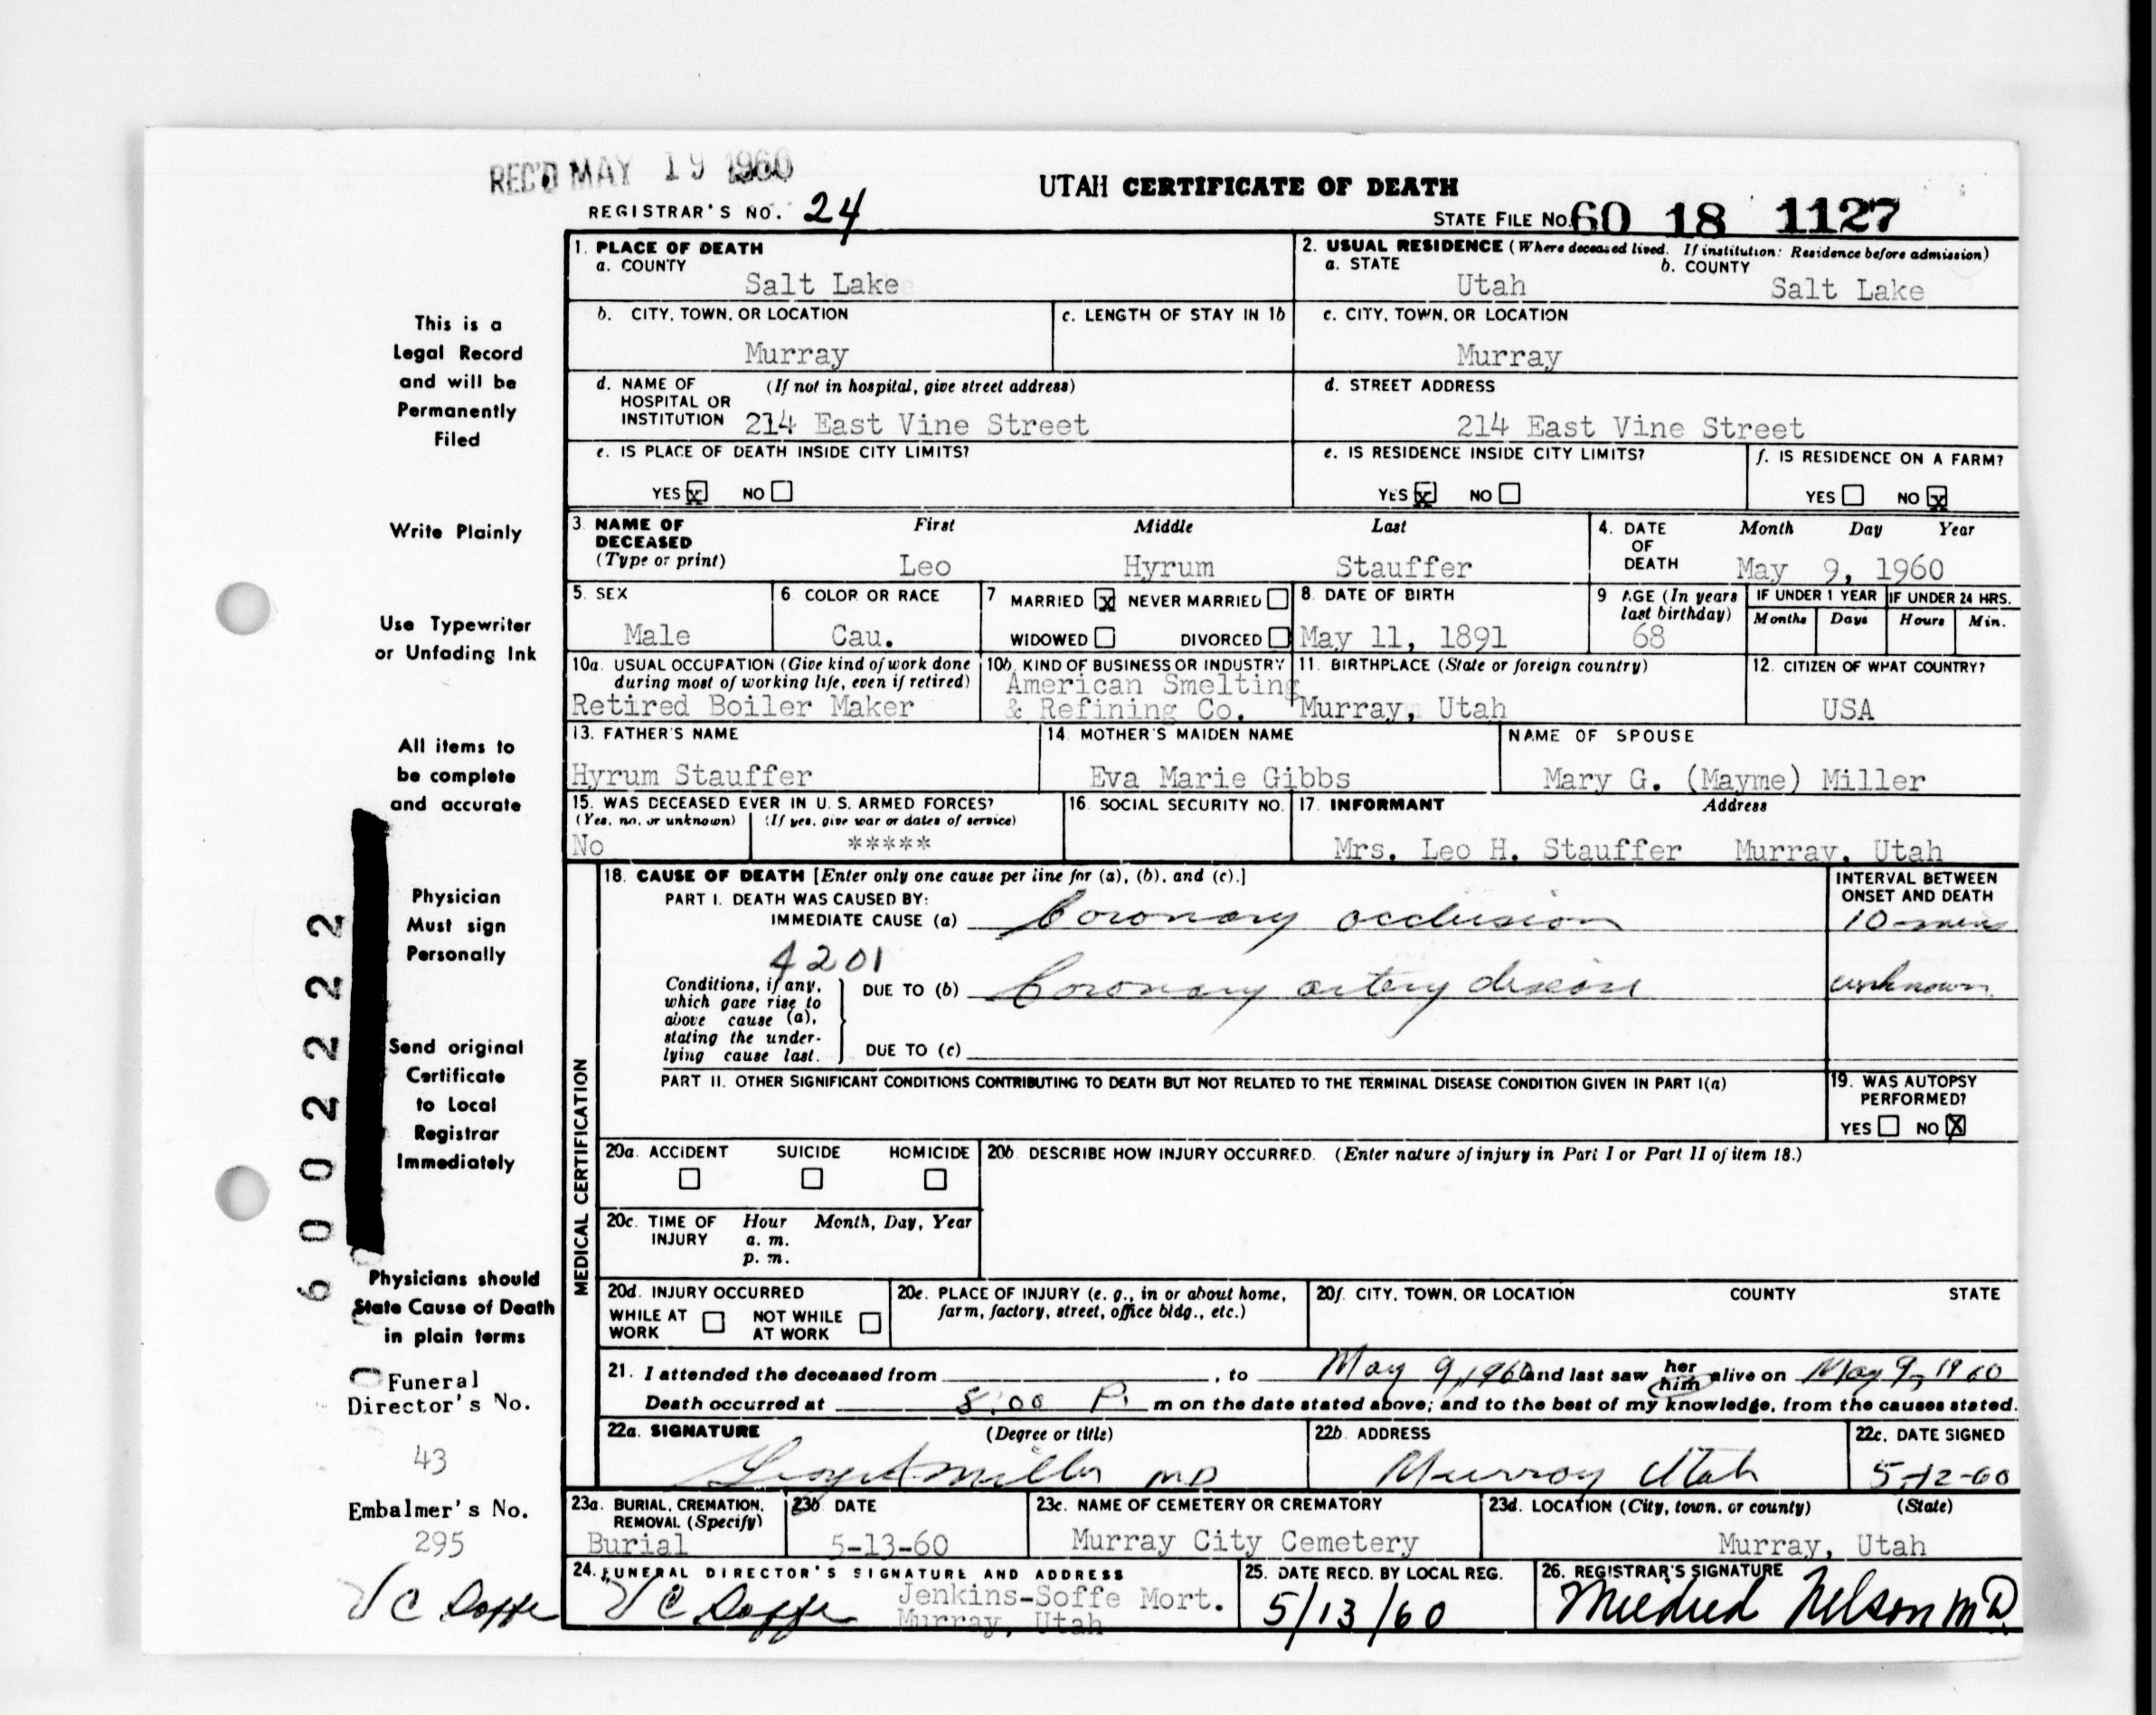 REC'D MAY 19 1960
UTAH CERTIFICATE OF DEATH
REGISTRAR'S NO. 24
STATE FILE NO. 60 18 1127
1. PLACE OF DEATH
a. COUNTY
Salt Lake
2. USUAL RESIDENCE (Where deceased lived. If institution: Residence before admission)
a. STATE b. COUNTY
Utah Salt Lake
b. CITY, TOWN, OR LOCATION
Murray
c. LENGTH OF STAY IN 1b
c. CITY, TOWN, OR LOCATION
Murray
d. NAME OF (If not in hospital, give street address)
HOSPITAL OR
INSTITUTION 214 East Vine Street
d. STREET ADDRESS
214 East Vine Street
e. IS PLACE OF DEATH INSIDE CITY LIMITS?
YES x NO
e. IS RESIDENCE INSIDE CITY LIMITS?
YES x NO
f. IS RESIDENCE ON A FARM?
YES NO x
3. NAME OF First Middle Last
DECEASED
(Type or print) Leo Hyrum Stauffer
4. DATE Month Day Year
OF
DEATH May 9, 1960
5. SEX
Male
6 COLOR OR RACE
Cau.
7 MARRIED x NEVER MARRIED
WIDOWED DIVORCED
8. DATE OF BIRTH
May 11, 1891
9 AGE (In years
last birthday)
68
IF UNDER 1 YEAR
Months Days
IF UNDER 24 HRS.
Hours Min.
10a. USUAL OCCUPATION (Give kind of work done
during most of working life, even if retired)
Retired Boiler Maker
10b. KIND OF BUSINESS OR INDUSTRY
American Smelting
& Refining Co.
11. BIRTHPLACE (State or foreign country)
Murray, Utah
12. CITIZEN OF WHAT COUNTRY?
USA
13. FATHER'S NAME
Hyrum Stauffer
14. MOTHER'S MAIDEN NAME
Eva Marie Gibbs
NAME OF SPOUSE
Mary G. (Mayme) Miller
15. WAS DECEASED EVER IN U. S. ARMED FORCES?
(Yes, no, or unknown) (If yes, give war or dates of service)
No *****
16. SOCIAL SECURITY NO.
17. INFORMANT Address
Mrs. Leo H. Stauffer Murray, Utah
MEDICAL CERTIFICATION
18. CAUSE OF DEATH [Enter only one cause per line for (a), (b), and (c).]
INTERVAL BETWEEN
ONSET AND DEATH
PART I. DEATH WAS CAUSED BY:
IMMEDIATE CAUSE (a) Coronary occlusion 10 mins
4201
Conditions, if any,
which gave rise to
above cause (a),
stating the under-
lying cause last.
DUE TO (b) Coronary artery disease unknown
DUE TO (c)
PART II. OTHER SIGNIFICANT CONDITIONS CONTRIBUTING TO DEATH BUT NOT RELATED TO THE TERMINAL DISEASE CONDITION GIVEN IN PART I(a)
19. WAS AUTOPSY
PERFORMED?
YES NO X
20a. ACCIDENT SUICIDE HOMICIDE
20b. DESCRIBE HOW INJURY OCCURRED. (Enter nature of injury in Part I or Part II of item 18.)
20c. TIME OF Hour Month, Day, Year
INJURY a. m.
p. m.
20d. INJURY OCCURRED
WHILE AT NOT WHILE
WORK AT WORK
20e. PLACE OF INJURY (e. g., in or about home,
farm, factory, street, office bldg., etc.)
20f. CITY, TOWN, OR LOCATION COUNTY STATE
21. I attended the deceased from , to May 9, 1960 and last saw her him alive on May 9, 1960
Death occurred at 8:00 P. m on the date stated above; and to the best of my knowledge, from the causes stated.
22a. SIGNATURE (Degree or title)
Miller MD
22b. ADDRESS
Murray Utah
22c. DATE SIGNED
5-12-60
23a. BURIAL, CREMATION,
REMOVAL (Specify)
Burial
23b. DATE
5-13-60
23c. NAME OF CEMETERY OR CREMATORY
Murray City Cemetery
23d. LOCATION (City, town, or county) (State)
Murray, Utah
24. FUNERAL DIRECTOR'S SIGNATURE AND ADDRESS
V C Soffe Jenkins-Soffe Mort.
Murray, Utah
25. DATE RECD. BY LOCAL REG.
5/13/60
26. REGISTRAR'S SIGNATURE
Mildred Nelson MD.
This is a
Legal Record
and will be
Permanently
Filed
Write Plainly
Use Typewriter
or Unfading Ink
All items to
be complete
and accurate
Physician
Must sign
Personally
Send original
Certificate
to Local
Registrar
Immediately
Physicians should
State Cause of Death
in plain terms
Funeral
Director's No.
43
Embalmer's No.
295
V C Soffe
6002222